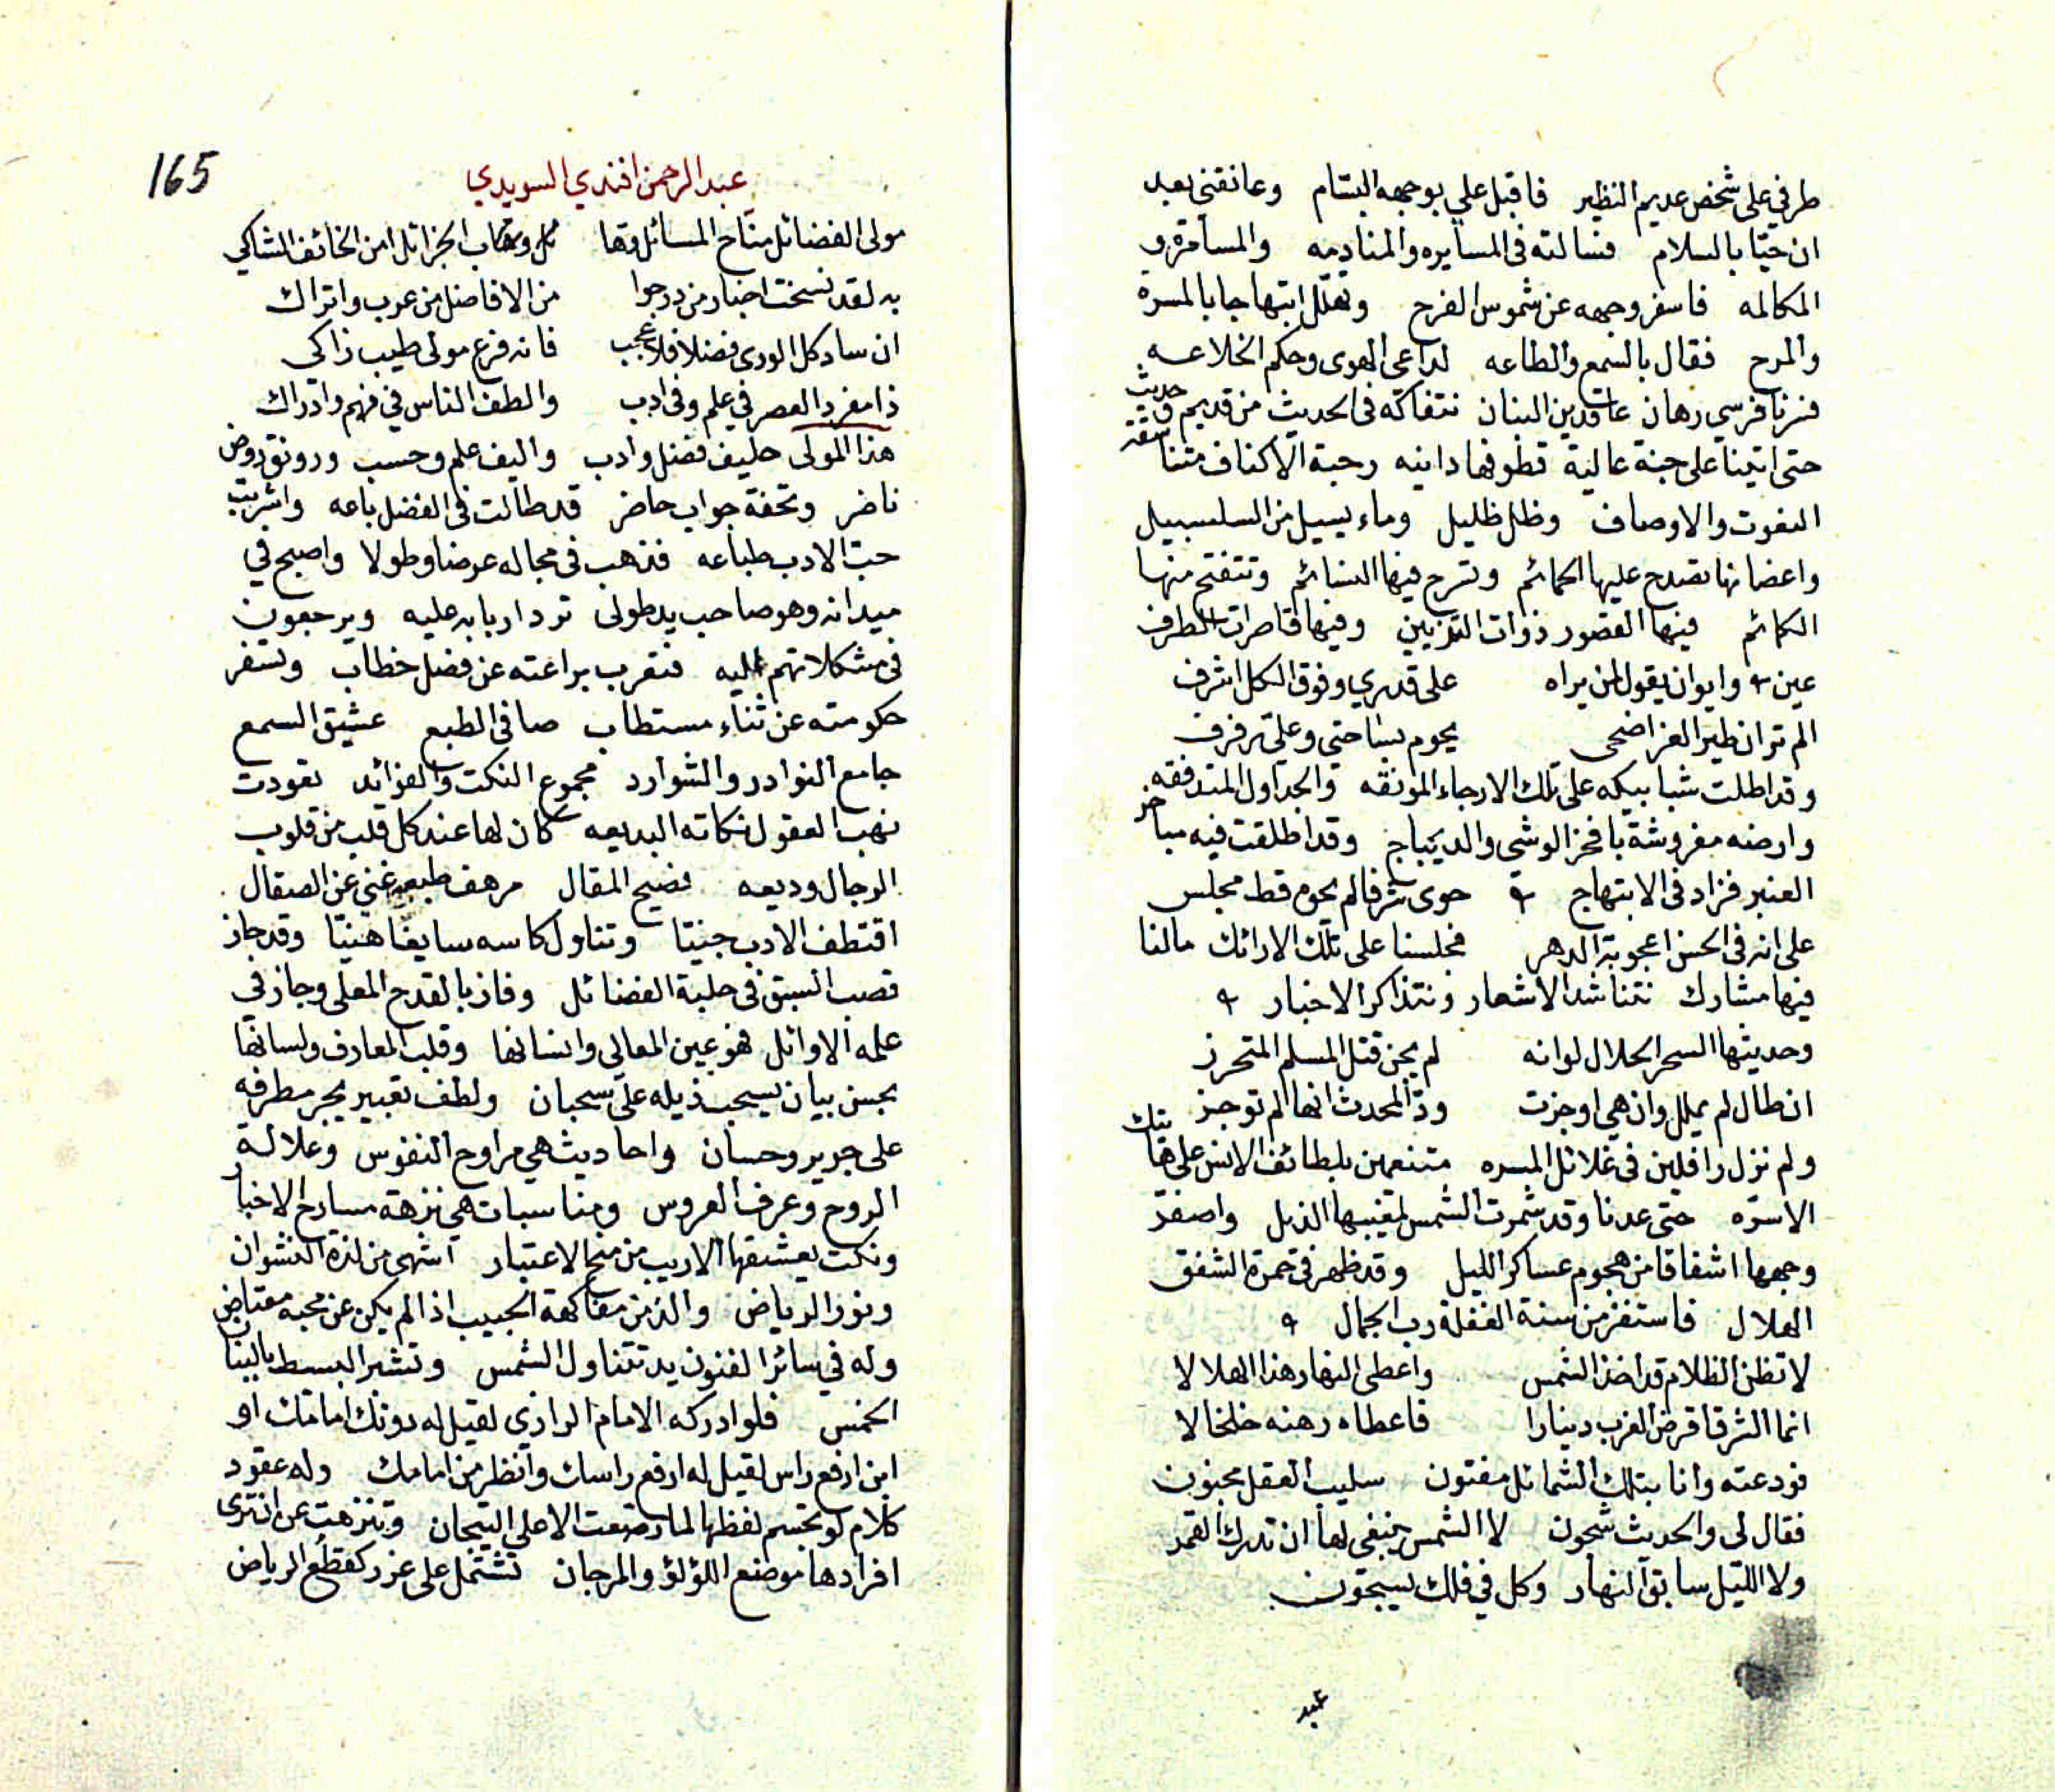 طرفي على شخص عديم النظير فاقبل علي بوجهه البسّام وعانقني بعد
ان حيّا بالسلام فسالته في المسايره والمنادمه والمسامرة و
المكالمه فاسفر وجهه عن شموس الفرح وتهلّل ابتهاجا بالمسرة
والمرح فقال بالسمع والطاعه لداعي الهوى وحكم الخلاعه
فسرنا فرسي رهان عاقدين البنان نتفاكه في الحديث من قديم وحديث
حتى اتينا على جنة عالية قطوفها دانيه رحبة الاكناف متناسقة
النعوت والاوصاف وظل ظليل وماء يسيل من السلسبيل
واغصانها تصدح عليها الحمائم وتسرح فيها النسائم وتتفتح منها
الكمائم فيها القصور ذوات التزيين وفيها قاصرات الطرف
عين وايوان يقول لمن يراه على قدري وفوق الكل اشرف
الم تر ان طير العز اضحى يحوم بساحتي وعليّ رفرف
وقد اطلت شبابيكه على تلك الارجاء المونقه والجداول المتدفقه
وارضه مفروشة بافخر الوشي والديباج وقد اطلقت فيه مباخر
العنبر فزاد في الابتهاج حوى شرفا لم يحوه قط مجلس
على انه في الحسن اعجوبة الدهر فجلسنا على تلك الارائك مالنا
فيها مشارك نتناشد الاشعار ونتذاكر الاخبار
وحديثها السحر الحلال لو انه لم يجن قتل المسلم المتحرز
ان طال لم يملل وان هي اوجزت ودّ المحدث انها لم توجز
ولم نزل رافلين في غلائل المسره متنعمين بلطائف الانس على هاتيك
الاسرّه حتى عدنا وقد شمرت الشمس لمغيبها الذيل واصفر
وجهها اشفاقا من هجوم عساكر الليل وقد ظهر في حمرة الشفق
الهلال فاستفز من سنة الغفلة رب الجمال
لا تظن الظلام قد اخذ الشمس واعطى النهار هذا الهلالا
انما الشرق اقرض الغرب دينارا فاعطاه رهنه خلخالا
فودعته وانا بتلك الشمائل مفتون سليب العقل مجنون
فقال لي والحديث شجون لا الشمس ينبغي لها ان تدرك القمر
ولا الليل سابق النهار وكل في فلك يسبحون
عبد
165
عبد الرحمن افندي السويدي
مولى الفضائل مناح المسائل وهاب الجزائل امن الخائف الشاكي
به لقد نسخت اخبار من درجوا من الافاضل من عرب واتراك
ان ساد كل الورى فضلا فلا عجب فانه فرع مولى طيب زاكي
ذا مفرد العصر في علم وفي ادب والطف الناس في فهم وادراك
هذا المولى حليف فضل وادب واليف علم وحسب ورونق روض
ناضر وتحفة جواب حاضر قد طالت في الفضل باعه واشربت
حب الادب طباعه فذهب في مجاله عرضا وطولا واصبح في
ميدانه وهو صاحب يد طولى ترد اربابه عليه ويرجعون
في مشكلاتهم اليه فتعرب براعته عن فصل خطاب وتسفر
حكومته عن ثناء مستطاب صافي الطبع عشيق السمع
جامع النوادر والشوارد مجموع النكت والفوائد تعودت
نهب العقول نكاته البديعه كان لها عند كل قلب من قلوب
الرجال وديعه فصيح المقال مرهف طبعه غني عن الصقال
اقتطف الادب جنيّا وتناول كاسه سايغا هنيّا وقد حاز
قصب السبق في حلبة الفضائل وفاز بالقدح المعلى وجاز في
علمه الاوائل فهو عين المعالي وانسانها وقلب المعارف ولسانها
بحسن بيان يسحب ذيله على سحبان ولطف تعبير يجر مطرفه
على جرير وحسان واحاديث هي مراوح النفوس وعلالة
الروح وعرف العروس ومناسبات هي نزهة مسارح الاخبار
ونكت يعشقها الاريب من الاعتبار اشهى من لذة النشوان
ونور الرياض والذ من مفاكهة الحبيب اذا لم يكن عن محبه معتاض
وله في سائر الفنون يد تتناول الشمس وتنشر البسط بالبنان
الخمس فلو ادركه الامام الرازي لقيل له دونك امامك او
ابن ارفع راس لقيل له ارفع راسك وانظر من امامك وله عقود
كلام لو تجسم لفظها لما رصعت الا على التيجان وتنزهت عن ان ترى
افرادها موضع اللؤلؤ والمرجان تشتمل على غرر كقطع الرياض